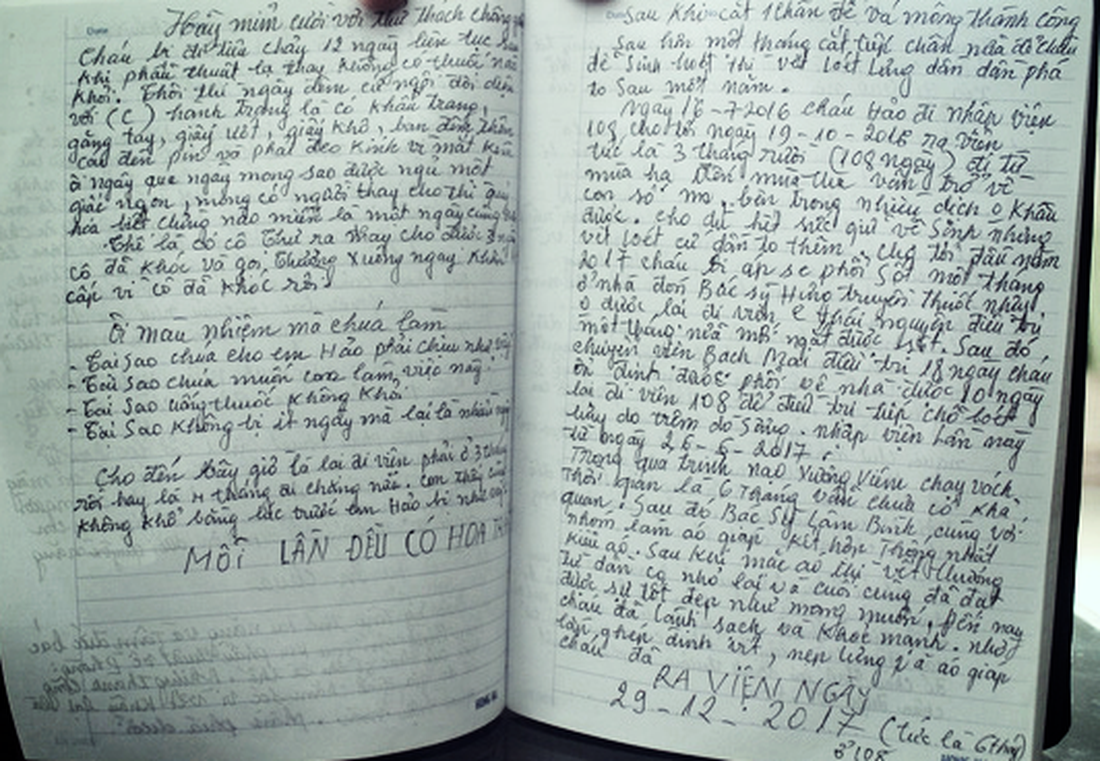 Hãy mỉm cười với thử thách chồng
Cháu bị đi ỉa chảy 12 ngày liên tục sau
khi phẫu thuật lạ thay không có thuốc nào
khỏi. Thôi thì ngày đêm cứ ngồi đối diện
với (C) hành trang là có khẩu trang,
găng tay, giấy ướt, giấy khô, ban đêm thêm
cái đèn pin và phải đeo kính vì mắt kém
ôi ngày qua ngày mong sao được ngủ một
giấc ngon, mong có người thay cho thì quý
hóa biết chừng nào miễn là một ngày cũng
Thế là có cô Thư ra thay cho được 3
cô đã khóc và gọi Thưởng Xuống ngay khẩn
cấp vì cô đã khóc rồi
Ôi mầu nhiệm mà chúa làm
- Tại sao chúa cho em Hảo phải chịu như vậy
- Tại sao chúa muốn con làm việc này
- Tại sao uống thuốc không khỏi
- Tại sao không bị ít ngày mà lại là nhiều
Cho đến bây giờ là lại đi viện phải ở 3 tháng
rồi hay là 4 tháng đi chăng nữa. con thấy cũng
không khổ bằng lúc trước em Hảo bị như
MỖI LẦN ĐỀU CÓ HOA
Sau khi cắt 1 chân để vá mông thành công
Sau hơn một tháng cắt tiếp chân nữa để cháu
dễ sinh hoạt thì vết loét lưng dần dần phá
to sau một năm.
Ngày 16-7-2016 cháu Hảo đi nhập viện
108 cho tới ngày 19-10-2016 ra viện
tức là 3 tháng rưỡi (108 ngày) đi từ
mùa hạ đến mùa thu vẫn trở về
con số mo. bên trong nhiều dịch o khâu
được. cho dù hết sức giữ vệ sinh nhưng
vết loét cứ dần to thêm, cho tới đầu năm
2017 cháu bị áp se phổi sốt một tháng
ở nhà đón Bác sỹ Hưng truyền thuốc nhưng
o được lại đi viện C thái nguyên điều trị
một tháng nữa mới ngắt được sốt. Sau đó,
chuyển viện Bạch Mai điều trị 18 ngày cháu
ổn định được phổi về nhà được 10 ngày
lại đi viện 108 để điều trị tiếp chỗ loét
lấy da trên da sống. nhập viện lần này
từ ngày 26-6-2017.
Trong quá trình nạo xương viêm chạy vách.
Thời gian là 6 tháng vẫn chưa có khả
quan. Sau đó Bác sỹ Lâm Bình cùng với
nhóm làm áo giáp kết hợp thống nhất
kiểu áo. Sau khi mặc áo thì vết thương
từ dần co nhỏ lại và cuối cùng đã đạt
được sự tốt đẹp như mong muốn. Đến nay
cháu đã lành sạch và khỏe mạnh. nhờ
lần ghép đinh vít, nẹp lưng và áo giáp
cháu đã
RA VIỆN NGÀY
29-12-2017 (tức là 6 tháng)
ở 108